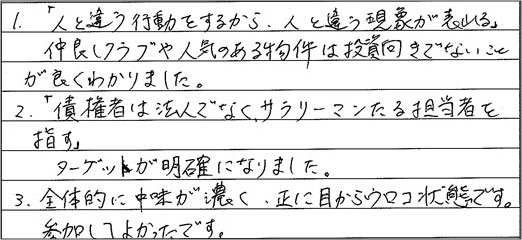 1. 「人と違う行動をするから、人と違う現象が表れる」
仲良しクラブや人気のある物件は投資向きでないこと
が良くわかりました。
2. 「債権者は法人でなく、サラリーマンたる担当者を
指す」
ターゲットが明確になりました。
3. 全体的に中味が濃く、正に目からウロコ状態です。
参加してよかったです。